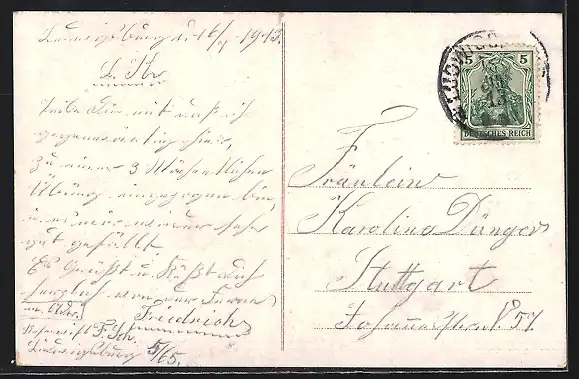 Ludwigsburg d. 16/4 1913.
L. Kr.
Teile Dir mit daß ich
gegenwärtig hier,
zu einer 3 Wöchentlichen
Übung eingezogen bin,
u. mir wieder sehr
gut gefällt.
Es Grüßt u. Küßt Dich
herzlich von der Ferne
Friedrich
Ludwigsburg 5/65.
5 5
DEUTSCHES REICH
Fräulein
Karolina Dünger
Stuttgart
57